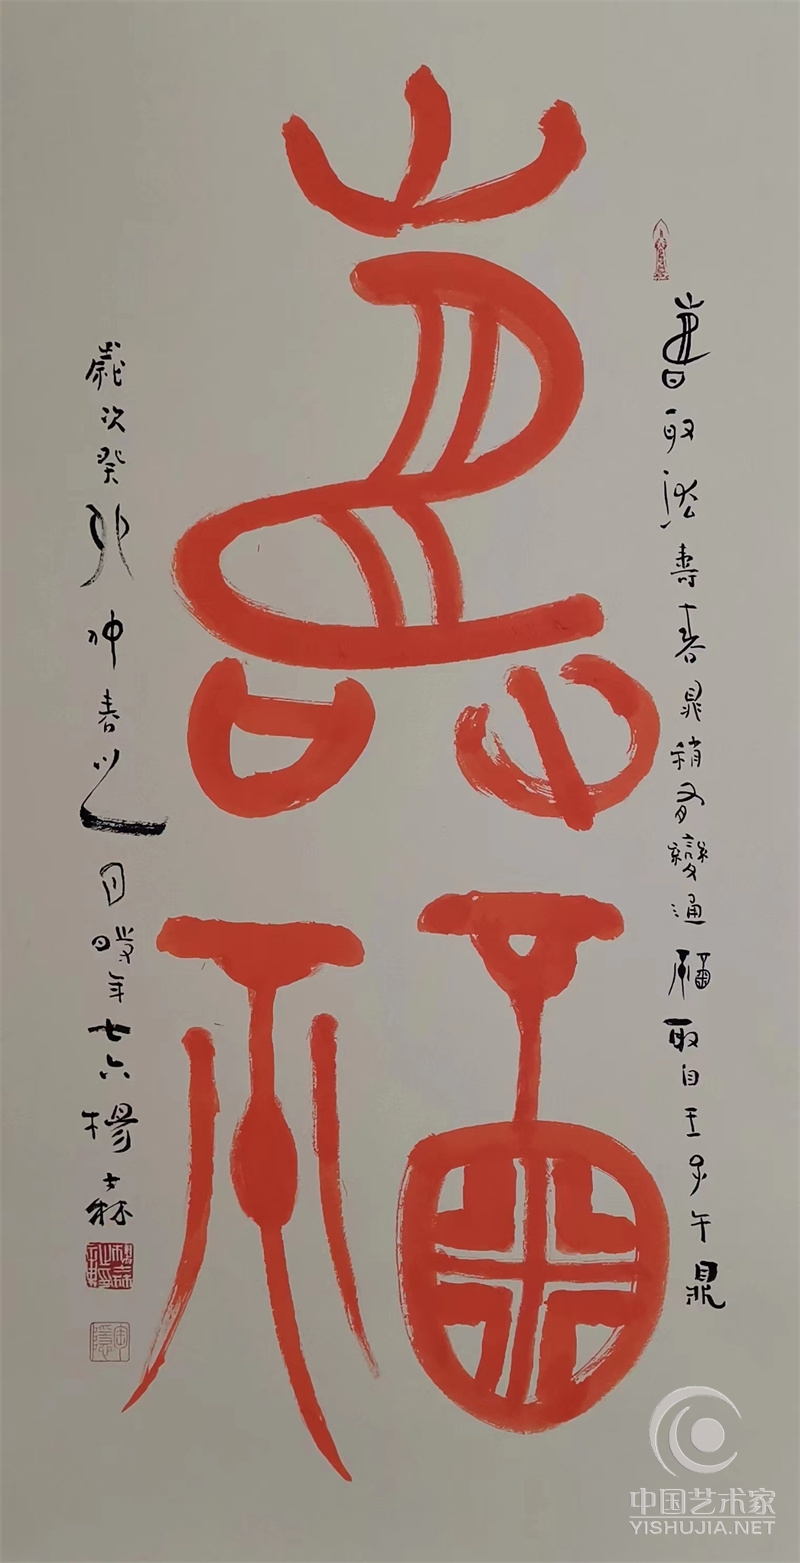 壽福
壽取法壽春鼎稍有變通福取自王子午鼎
歲次癸卯仲春之月時年七六楊森
中国艺术家
YISHUJIA.NET